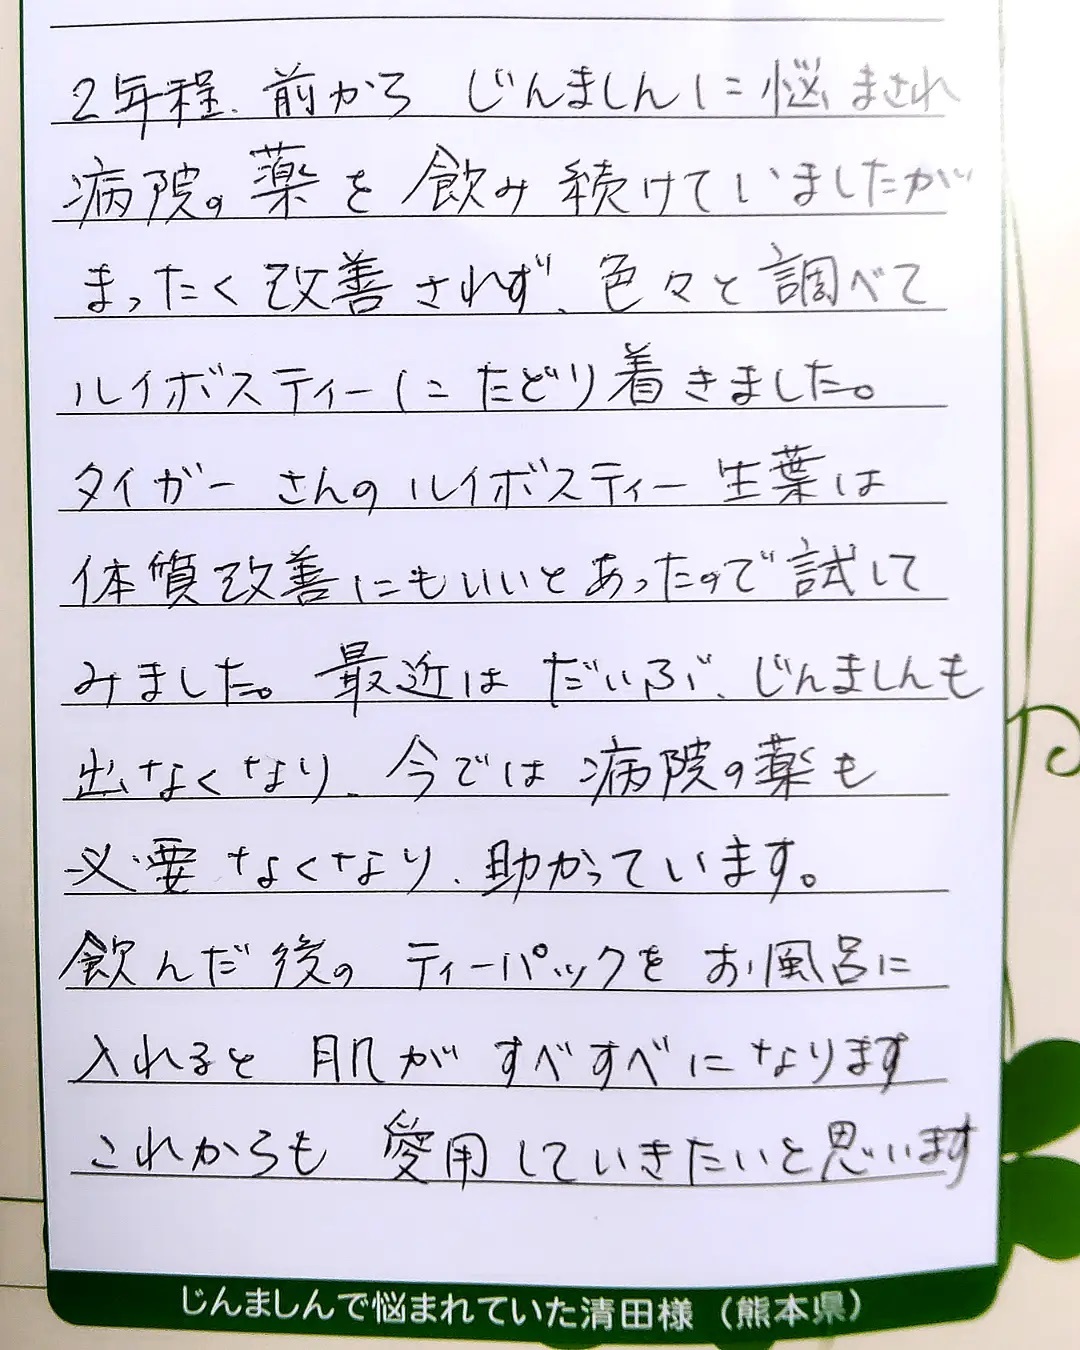 2年程、前から じんましんに悩まされ
病院の薬を飲み続けていましたが
まったく改善されず、色々と調べて
ルイボスティーにたどり着きました。
タイガーさんのルイボスティー生葉は
体質改善にもいいとあったので試して
みました。最近はだいぶ、じんましんも
出なくなり、今では病院の薬も
必要なくなり、助かっています。
飲んだ後のティーパックをお風呂に
入れると肌がすべすべになります
これからも愛用していきたいと思います
じんましんで悩まれていた清田様（熊本県）